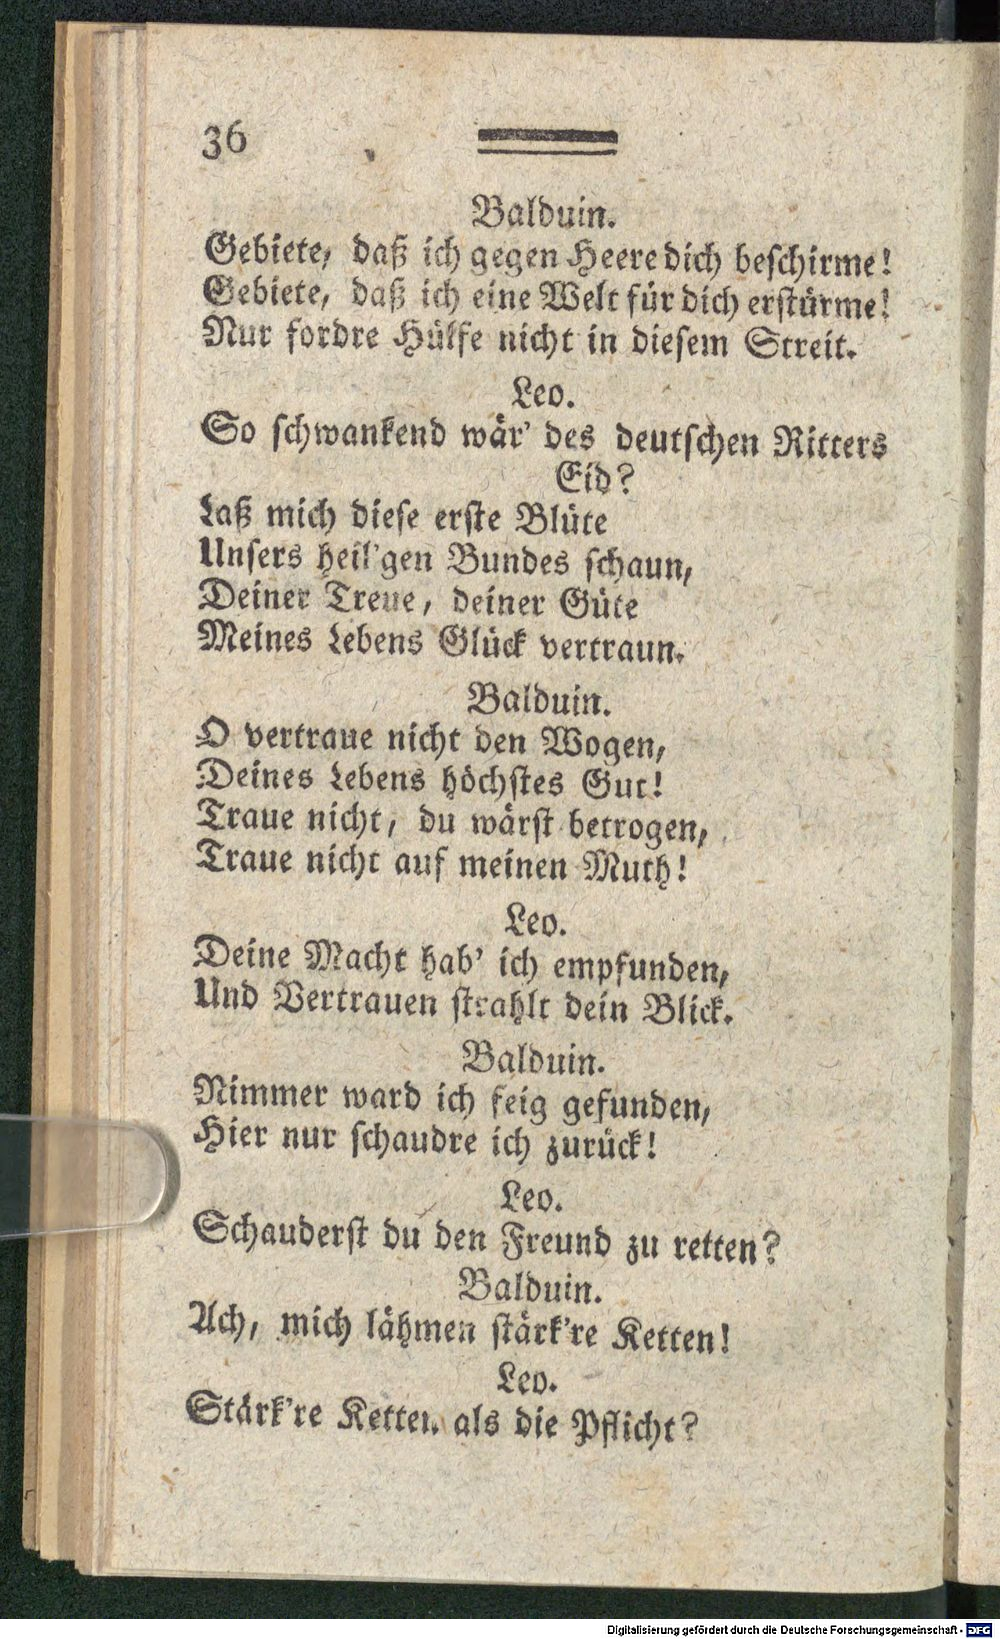 36
Balduin.
Gebiete, daß ich gegen Heere dich beschirme!
Gebiete, daß ich eine Welt für dich erstürme!
Nur fordre Hülfe nicht in diesem Streit.
Leo.
So schwankend wär' des deutschen Ritters
Eid?
Laß mich diese erste Blüte
Unsers heil'gen Bundes schaun,
Deiner Treue, deiner Güte
Meines Lebens Glück vertraun.
Balduin.
O vertraue nicht den Wogen,
Deines Lebens höchstes Gut!
Traue nicht, du wärst betrogen,
Traue nicht auf meinen Muth!
Leo.
Deine Macht hab' ich empfunden,
Und Vertrauen strahlt dein Blick.
Balduin.
Nimmer ward ich feig gefunden,
Hier nur schaudre ich zurück!
Leo.
Schauderst du den Freund zu retten?
Balduin.
Ach, mich lähmen stärk're Ketten!
Leo.
Stärk're Ketten als die Pflicht?
Digitalisierung gefördert durch die Deutsche Forschungsgemeinschaft - DFG